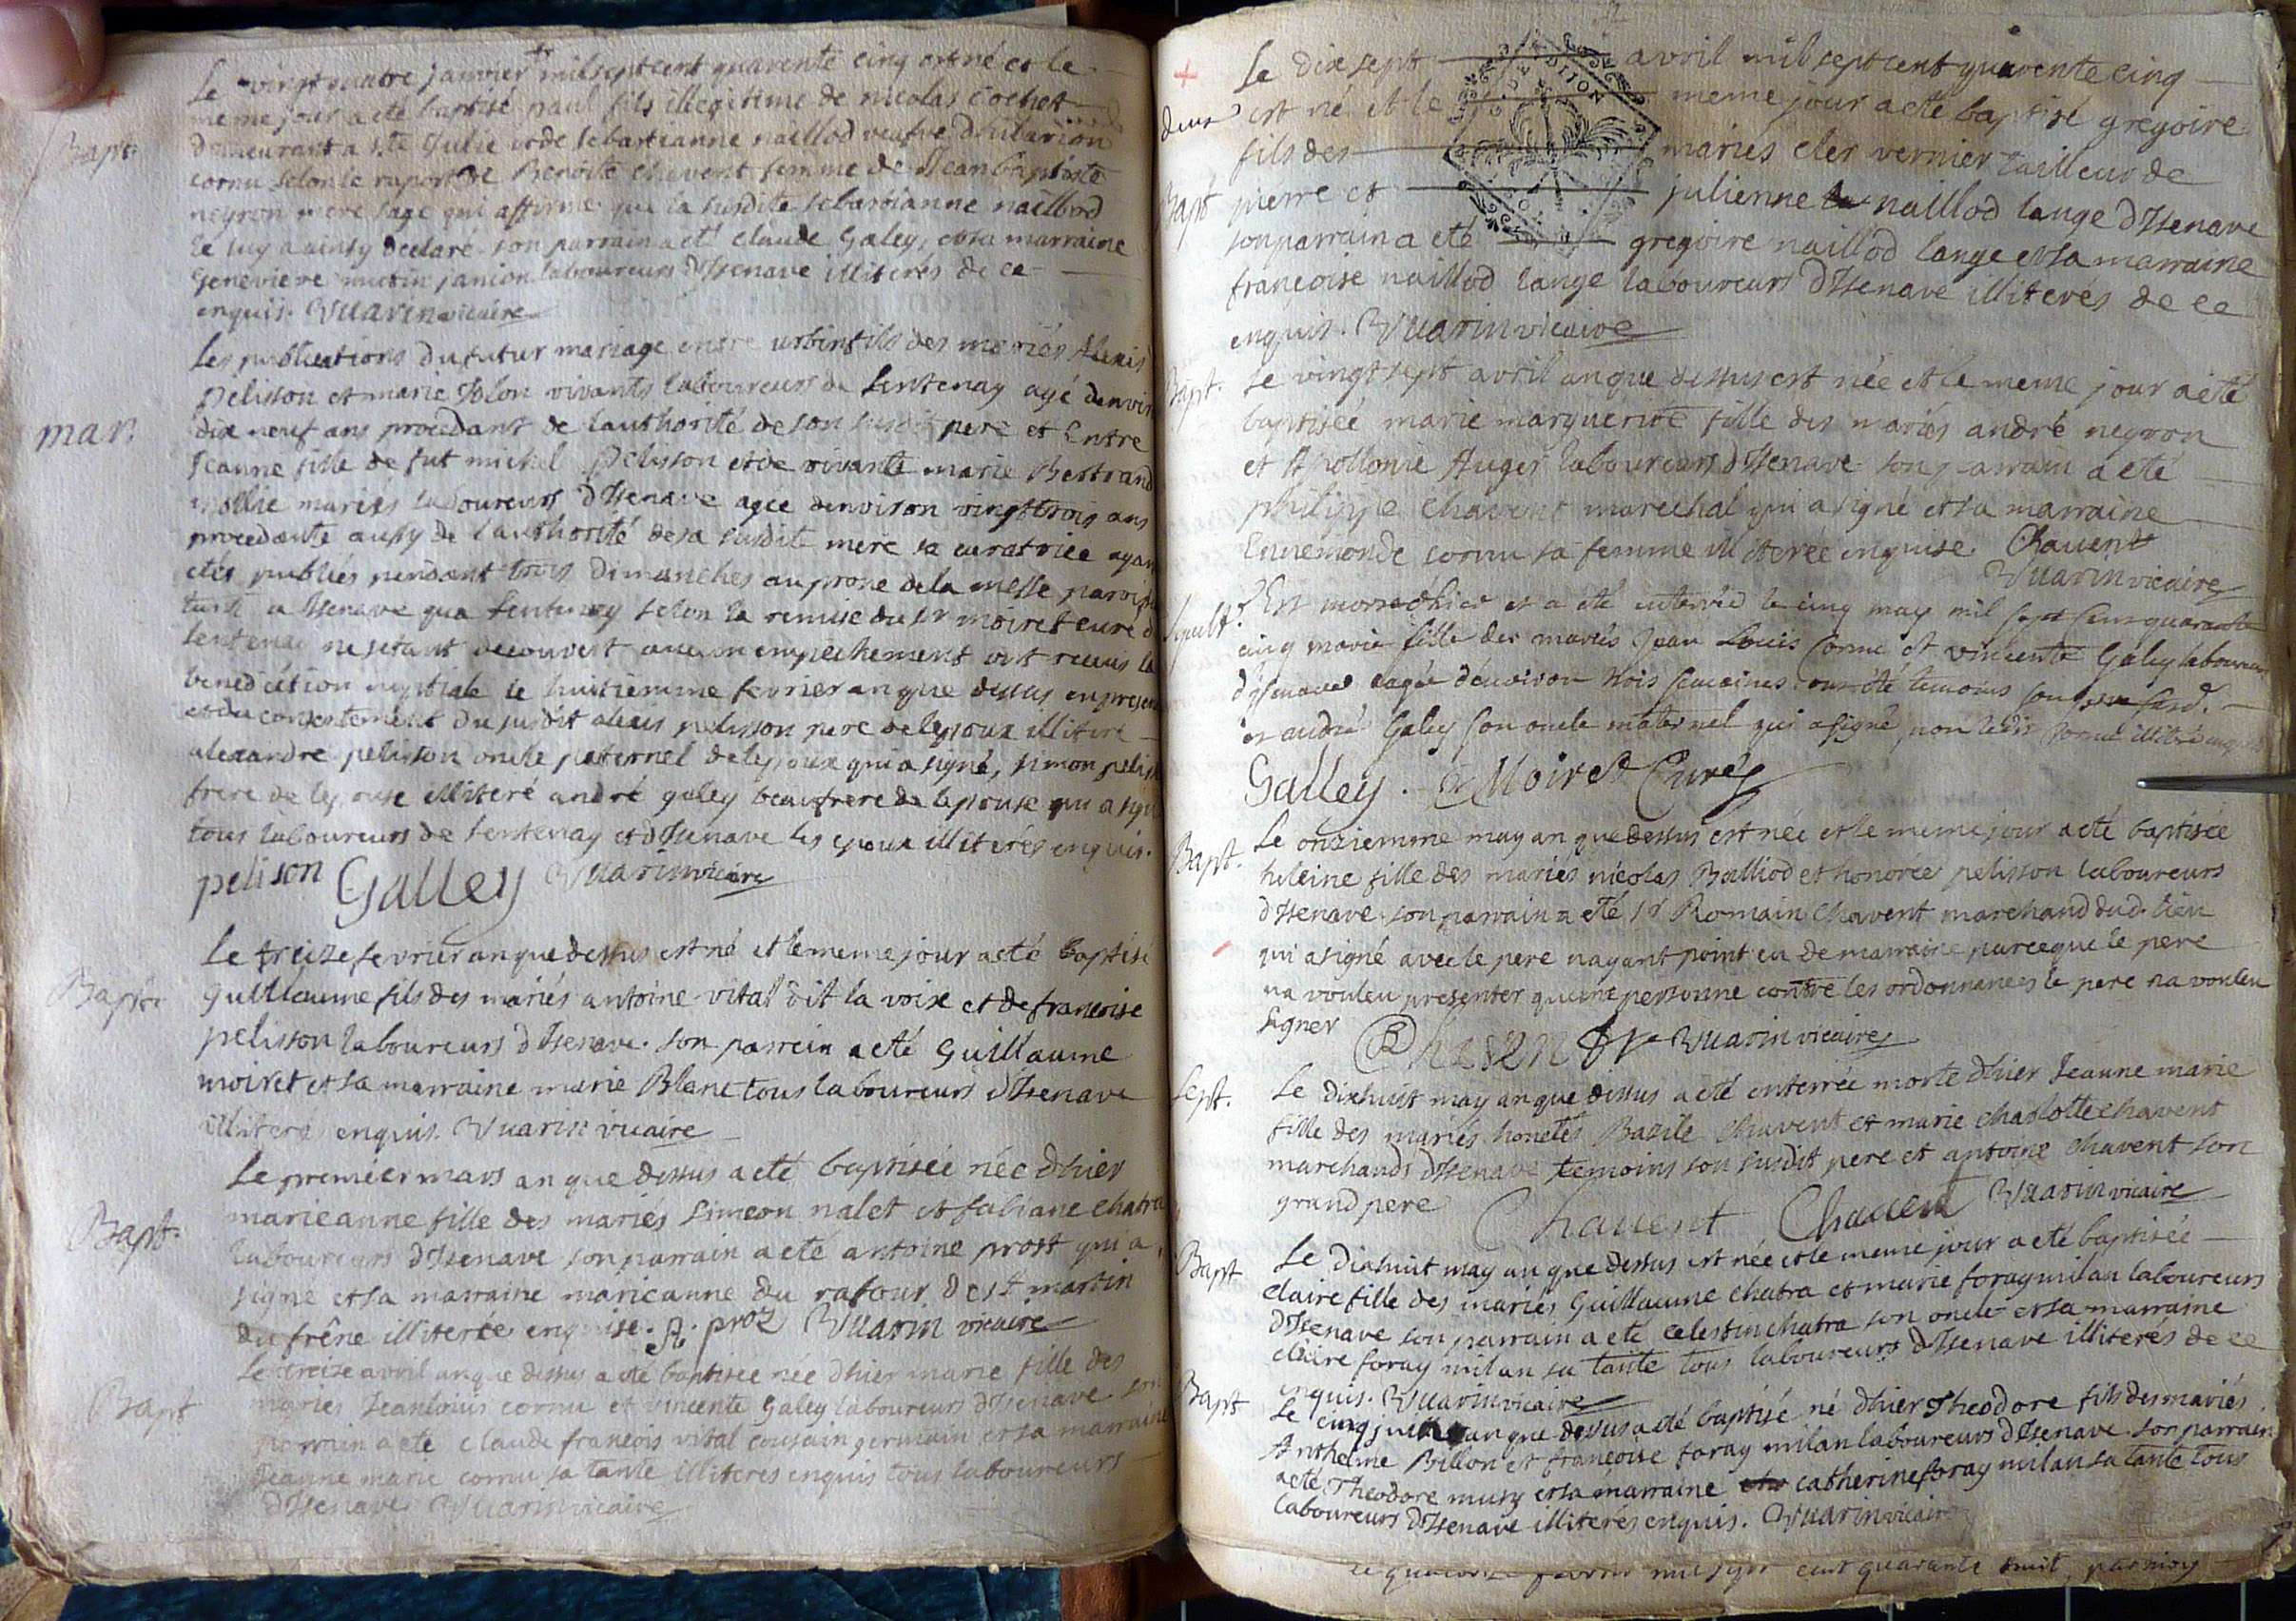 Le vingt quatre janvier mil sept cent quarente cinq est né et le
meme jour a eté baptisé paul fils illegitime de nicolas Cochet
Bapt. demeurant a ste Julie et de sebastianne naillod veufve d'hilarion
cornu selon le raport de Benoite chavent femme de Jean baptiste
neyron mere sage qui affirme que la susdite sebastianne naillod
le luy a ainsy declaré son parrain a eté claude Galey, et sa marraine
Genevieve janion laboureurs d'Isenave illiterés de ce
enquis. Vuarin vicaire
Les publications du futur mariage entre urbin fils des mariés Alexis
Pelisson et marie Tolon vivants laboureurs de Lentenay agé denviron
mar. dix neuf ans procedant de l'authorité de son susdit pere et Entre
Jeanne fille de fut michel Pelisson et de vivante marie Bertrand
mariés laboureurs d'Isenave agée denviron vingt trois ans
procedante aussy de l'authorité de sa susdite mere sa curatrice ayant
etés publiés pendant trois dimanches au prone de la messe
tant a Isenave qua Lentenay selon la remise du sr moiret curé
Lentenay ne setant decouvert aucun empechement ont recus la
benediction nuptiale le huitiemme fevrier an que dessus en presence
et du consentement du susdit alexis pelisson pere de lepoux illiteré
alexandre pelisson oncle paternel de lepoux qui a signé, simon
frere de lepouse illiteré andré galey beaufrere de lepouse qui a
tous laboureurs de Lentenay et d'Isenave les epoux illiterés enquis.
pelison Galley Vuarin vicaire
Le treize fevrier an que dessus est né et le meme jour a eté baptisé
Bapt. Guillaume fils des mariés antoine vital dit la voix et de francoise
pelisson laboureurs d'Isenave. son parrein a eté Guillaume
moiret et sa marraine marie Blanc tous laboureurs d'Isenave
illiterés enquis. Vuarin vicaire
Le premier mars an que dessus a eté baptisée née d'hier
marieanne fille des mariés Simeon nalet et fabiane chatra
Bapt. laboureurs d'Isenave son parrain a eté antoine prost qui a
signe et sa marraine marieanne du rafour de st martin
du frêne illiterée enquise. A. proz Vuarin vicaire
Le treize avril an que dessus a eté baptisée née d'hier marie fille des
Bapt mariés Jean louis cornu et vincente Galey laboureurs d'Isenave son
parrain a eté claude francois vital cousain germain et sa marraine
Jeanne marie cornu sa tante illiteres enquis tous laboureurs
d'Isenave Vuarin vicaire
Le dix sept avril mil sept cent quarente cinq
deux est né et le meme jour a eté baptisé gregoire
fils des mariés cler vernier tailleur de
Bapt pierre et julienne naillod lange d'Isenave
son parrain a eté gregoire naillod lange et sa marraine
francoise naillod lange laboureurs d'Isenave illiterés de ce
enquis. Vuarin vicaire
Bapt. Le vingt sept avril an que dessus est née et le meme jour a eté
baptisée marie marguerite fille des mariés andré neyron
et Apollonie Auger laboureurs d'Isenave son parrain a eté
philippe Chavent marechal qui a signé et sa marraine
Ennemonde cornu sa femme illiterée enquise. Chavent
Vuarin vicaire
Sepult. Est morte d'hier et a eté enterrée le cinq may mil sept cent quarante
cinq marie fille des mariés Jean Louis Cornu et vincente Galey laboureurs
d'Isenave agée d'environ trois semaines ont été temoins son
et andré Galey son oncle maternel qui a signé non ledit Cornu illitéré enquis
Galley. Moiret Curé
Bapt. Le onziemme may an que dessus est née et le meme jour a eté baptisée
heleine fille des mariés nicolas Balliod et honorée pelisson laboureurs
d'Isenave. son parrain a eté sr Romain Chavent marchand dud. lieu
qui a signé avec le pere nayant point eu de marraine parceque le pere
na voulu presenter quune personne contre les ordonnances le pere na voulu
signer Vuarin vicaire
Sept. Le dixhuit may an que dessus a eté enterrée morte d'hier Jeanne marie
fille des mariés honetes Bazile chavent et marie charlotte chavent
marchands d'Isenave temoins son susdit pere et antoine chavent son
grand pere Chavent Chavent Vuarin vicaire
Bapt Le dixhuit may an que dessus est née et le meme jour a eté baptisée
claire fille des mariés Guillaume chatra et marie foray milan laboureurs
d'Isenave son parrain a eté celestin chatra son oncle et sa marraine
claire foray milan sa tante tous laboureurs d'Isenave illiterés de ce
enquis. Vuarin vicaire
Bapt Le cinq an que dessus a eté baptisé né d'hier Theodore fils des mariés
Anthelme Billion et francoise foray milan laboureurs d'Isenave. son parrain
a eté Theodore musy et sa marraine catherine foray milan sa tante tous
laboureurs d'Isenave illiterés enquis. Vuarin vicaire
mil sept cent quarante huit, par moy